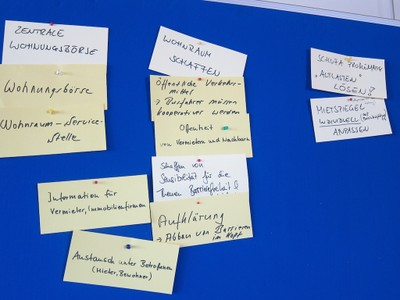 ZENTRALE
WOHNUNGSBÖRSE
Wohnungsbörse
Wohnraum-Service-
stelle
Information für
Vermieter, Immobilienfirmen
Austausch unter Betroffenen
(Mieter, Bewohner)
WOHNRAUM
SCHAFFEN
Öffentliche Verkehrs-
mittel
→ Busfahrer müssen
kooperativer werden
Offenheit
von Vermietern und Nachbarn
Schaffen von
Sensibilität für die
Barrierefreiheit!
Aufklärung
→ Abbau von Barrieren
im Kopf
SCHUFA PROBLEMATIK
"ALTLASTEN"
LÖSEN!
MIETSPIEGEL
INDIVIDUELL
ANPASSEN